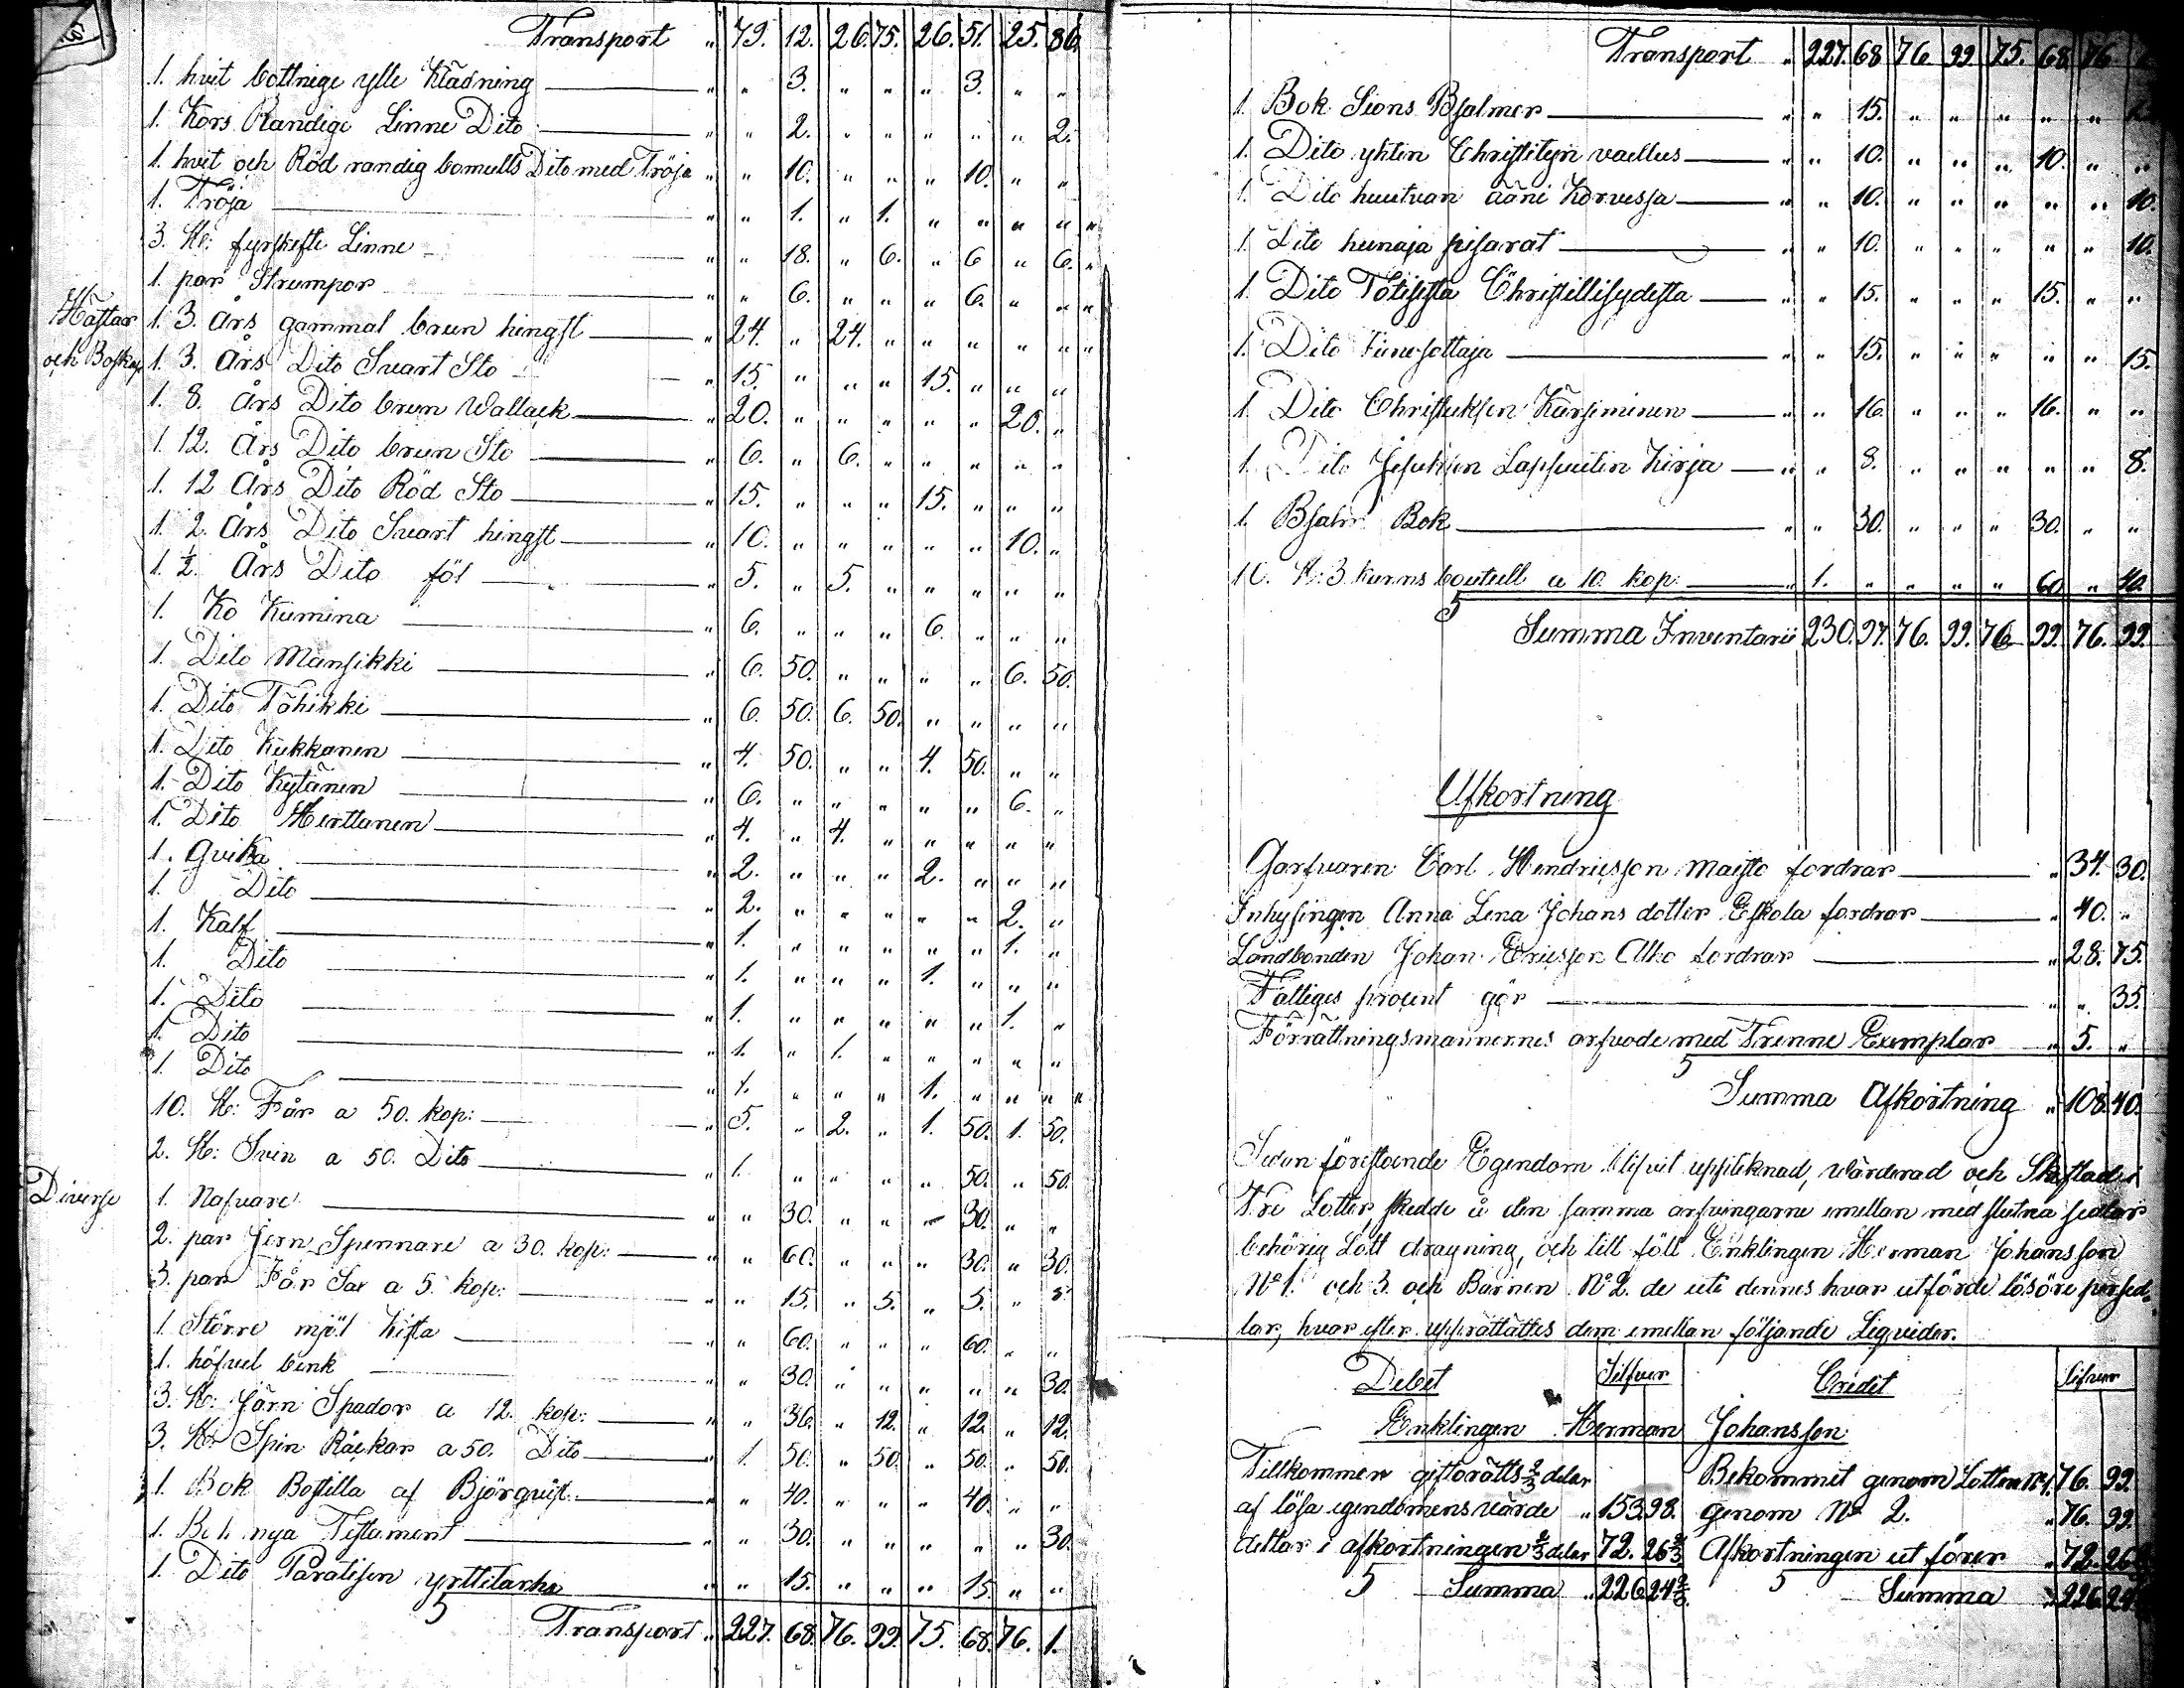 Transport „ 79. 12. 26. 75. 26. 51. 25. 86.
1. hvit bottnige ylle Klädning „ „ 3. „ „ „ 3. „ „
1. Kors Randige Linne Dito „ „ 2. „ „ „ „ „ 2.
1. hvit och Röd randig bomulls Dito med Tröja „ „ 10. „ „ „ 10. „ „
1. Tröja „ „ 1. „ 1. „ „ „ „
3. St: fyrskefte Linne „ „ 18. „ 6. „ 6 „ 6.
1. par Strumpor „ „ 6. „ „ „ 6. „ „
Hästar
och Boskap
1. 3. Års gammal brun hingst „ 24. „ 24. „ „ „ „ „
1. 3. Års Dito Svart Sto „ 15. „ „ „ 15. „ „ „
1. 8. Års Dito brun Wallack „ 20. „ „ „ „ „ 20. „
1. 12. Års Dito brun Sto „ 6. „ 6. „ „ „ „ „
1. 12 Års Dito Röd Sto „ 15. „ „ „ 15. „ „ „
1. 2. Års Dito Svart hingst „ 10. „ „ „ „ „ 10. „
1. ½. Års Dito föl „ 5. „ 5. „ „ „ „ „
1. Ko Kumina „ 6. „ „ „ 6. „ „ „
1. Dito Mansikki „ 6. 50. „ „ „ „ 6. 50.
1. Dito Tähikki „ 6. 50. 6. 50. „ „ „ „
1. Dito Kukkanen „ 4. 50. „ „ 4. 50. „ „
1. Dito Kytänen „ 6. „ „ „ „ „ 6. „
1. Dito Herttanen „ 4. „ 4. „ „ „ „ „
1. Qviga „ 2. „ „ „ 2. „ „ „
1. Dito „ 2. „ „ „ „ „ 2. „
1. Kalf „ 1. „ „ „ „ „ 1. „
1. Dito „ 1. „ „ „ 1. „ „ „
1. Dito „ 1. „ „ „ „ „ 1. „
1. Dito „ 1. „ 1. „ „ „ „ „
1. Dito „ 1. „ „ „ 1. „ „ „
10. St: Får a 50. kop: „ 5. „ 2. „ 1. 50. 1. 50.
2. St: Svin a 50. Dito „ 1. „ „ „ „ 50. „ 50.
Diverse
1. Nafvare „ „ 30. „ „ „ 30. „ „
2. par Jern Spennare a 30. kop: „ „ 60. „ „ „ 30. „ 30.
3. par Får Sax a 5. kop: „ „ 15. „ 5. „ 5. „ 5.
1. Större mjöl Kista „ „ 60. „ „ „ 60. „ „
1. höfvel bänk „ „ 30. „ „ „ „ „ 30.
3. St: Järn Spador a 12. kop: „ „ 36. „ 12. „ 12. „ 12.
3. St: Spin Råckar a 50. Dito „ 1. 50. „ 50. „ 50. „ 50.
1. Bok Postilla af Björqvist „ „ 40. „ „ „ 40. „ „
1. Bok nya Testament „ „ 30. „ „ „ „ „ 30.
1. Dito Paratisen yrttitarha „ „ 15. „ „ „ 15. „ „
Transport „ 227. 68. 76. 99. 75. 68. 76. 1.
Transport „ 227. 68 76 99 75. 68. 76
1. Bok Sions Psalmer „ „ 15. „ „ „ „ „
1. Dito yhten Christityn vaellus „ „ 10. „ „ „ 10. „ „
1. Dito huutvan ääni Korvessa „ „ 10. „ „ „ „ „ 10.
1. Dito hunaja pisarat „ „ 10. „ „ „ „ „ 10.
1. Dito Totisesta Christillisydesta „ „ 15. „ „ „ 15. „ „
1. Dito „ „ 15. „ „ „ „ „ 15.
1. Dito Christuksen Kärsiminen „ „ 16. „ „ „ 16. „ „
1. Dito Jesuksen Lapsuuten Kirja „ „ 8. „ „ „ „ „ 8.
1. Psalm Bok „ „ 30. „ „ „ 30. „ „
10. St: 3 kurns bouteill a 10. kop: „ 1. „ „ „ „ 60. „ 40.
Summa Inventarii 230. 97. 76. 99. 76. 99. 76. 99.
Afkortning
Garfvaren Carl Hendricsson Maisto fordrar „ 34. 30.
Inhysingen Anna Lena Johans dotter Eskola fordrar „ 40. „
Landbonden Johan Ericsson Alho fordrar „ 28. 75.
Fattiges procent gör „ „ 35.
Förrättningsmännernes arfvode med Trenne Exemplar „ 5. „
Summa Afkortning „ 108. 40.
Sedan förestående Egendom blifvit uppteknad, wärderad och Skiftad i
Tre Lotter, skedde å den samma arfvingarne emellan med slutna sedlar
behörig Lott dragning, och till föll Enklingen Herman Johansson
No 1. och 3. och Barnen No 2. de uti dennes hvar utförde lösöre persed-
lar, hvar efter upprättattes dem emellan följande Liqvider.
Debet Silfver Credit Silfver
Enklingen Herman Johansson
Tillkommer giftorätts ⅔ delar Bekommit genom Lotten No 1. 76. 99.
af lösa egendomens värde „ 153. 98. genom No 2. „ 76. 99.
dettar i afkortningen ⅔ delar 72. 26⅔ Afkortningen ut förer „ 72. 26⅔
Summa „ 226. 24⅔ Summa „ 226. 24⅔